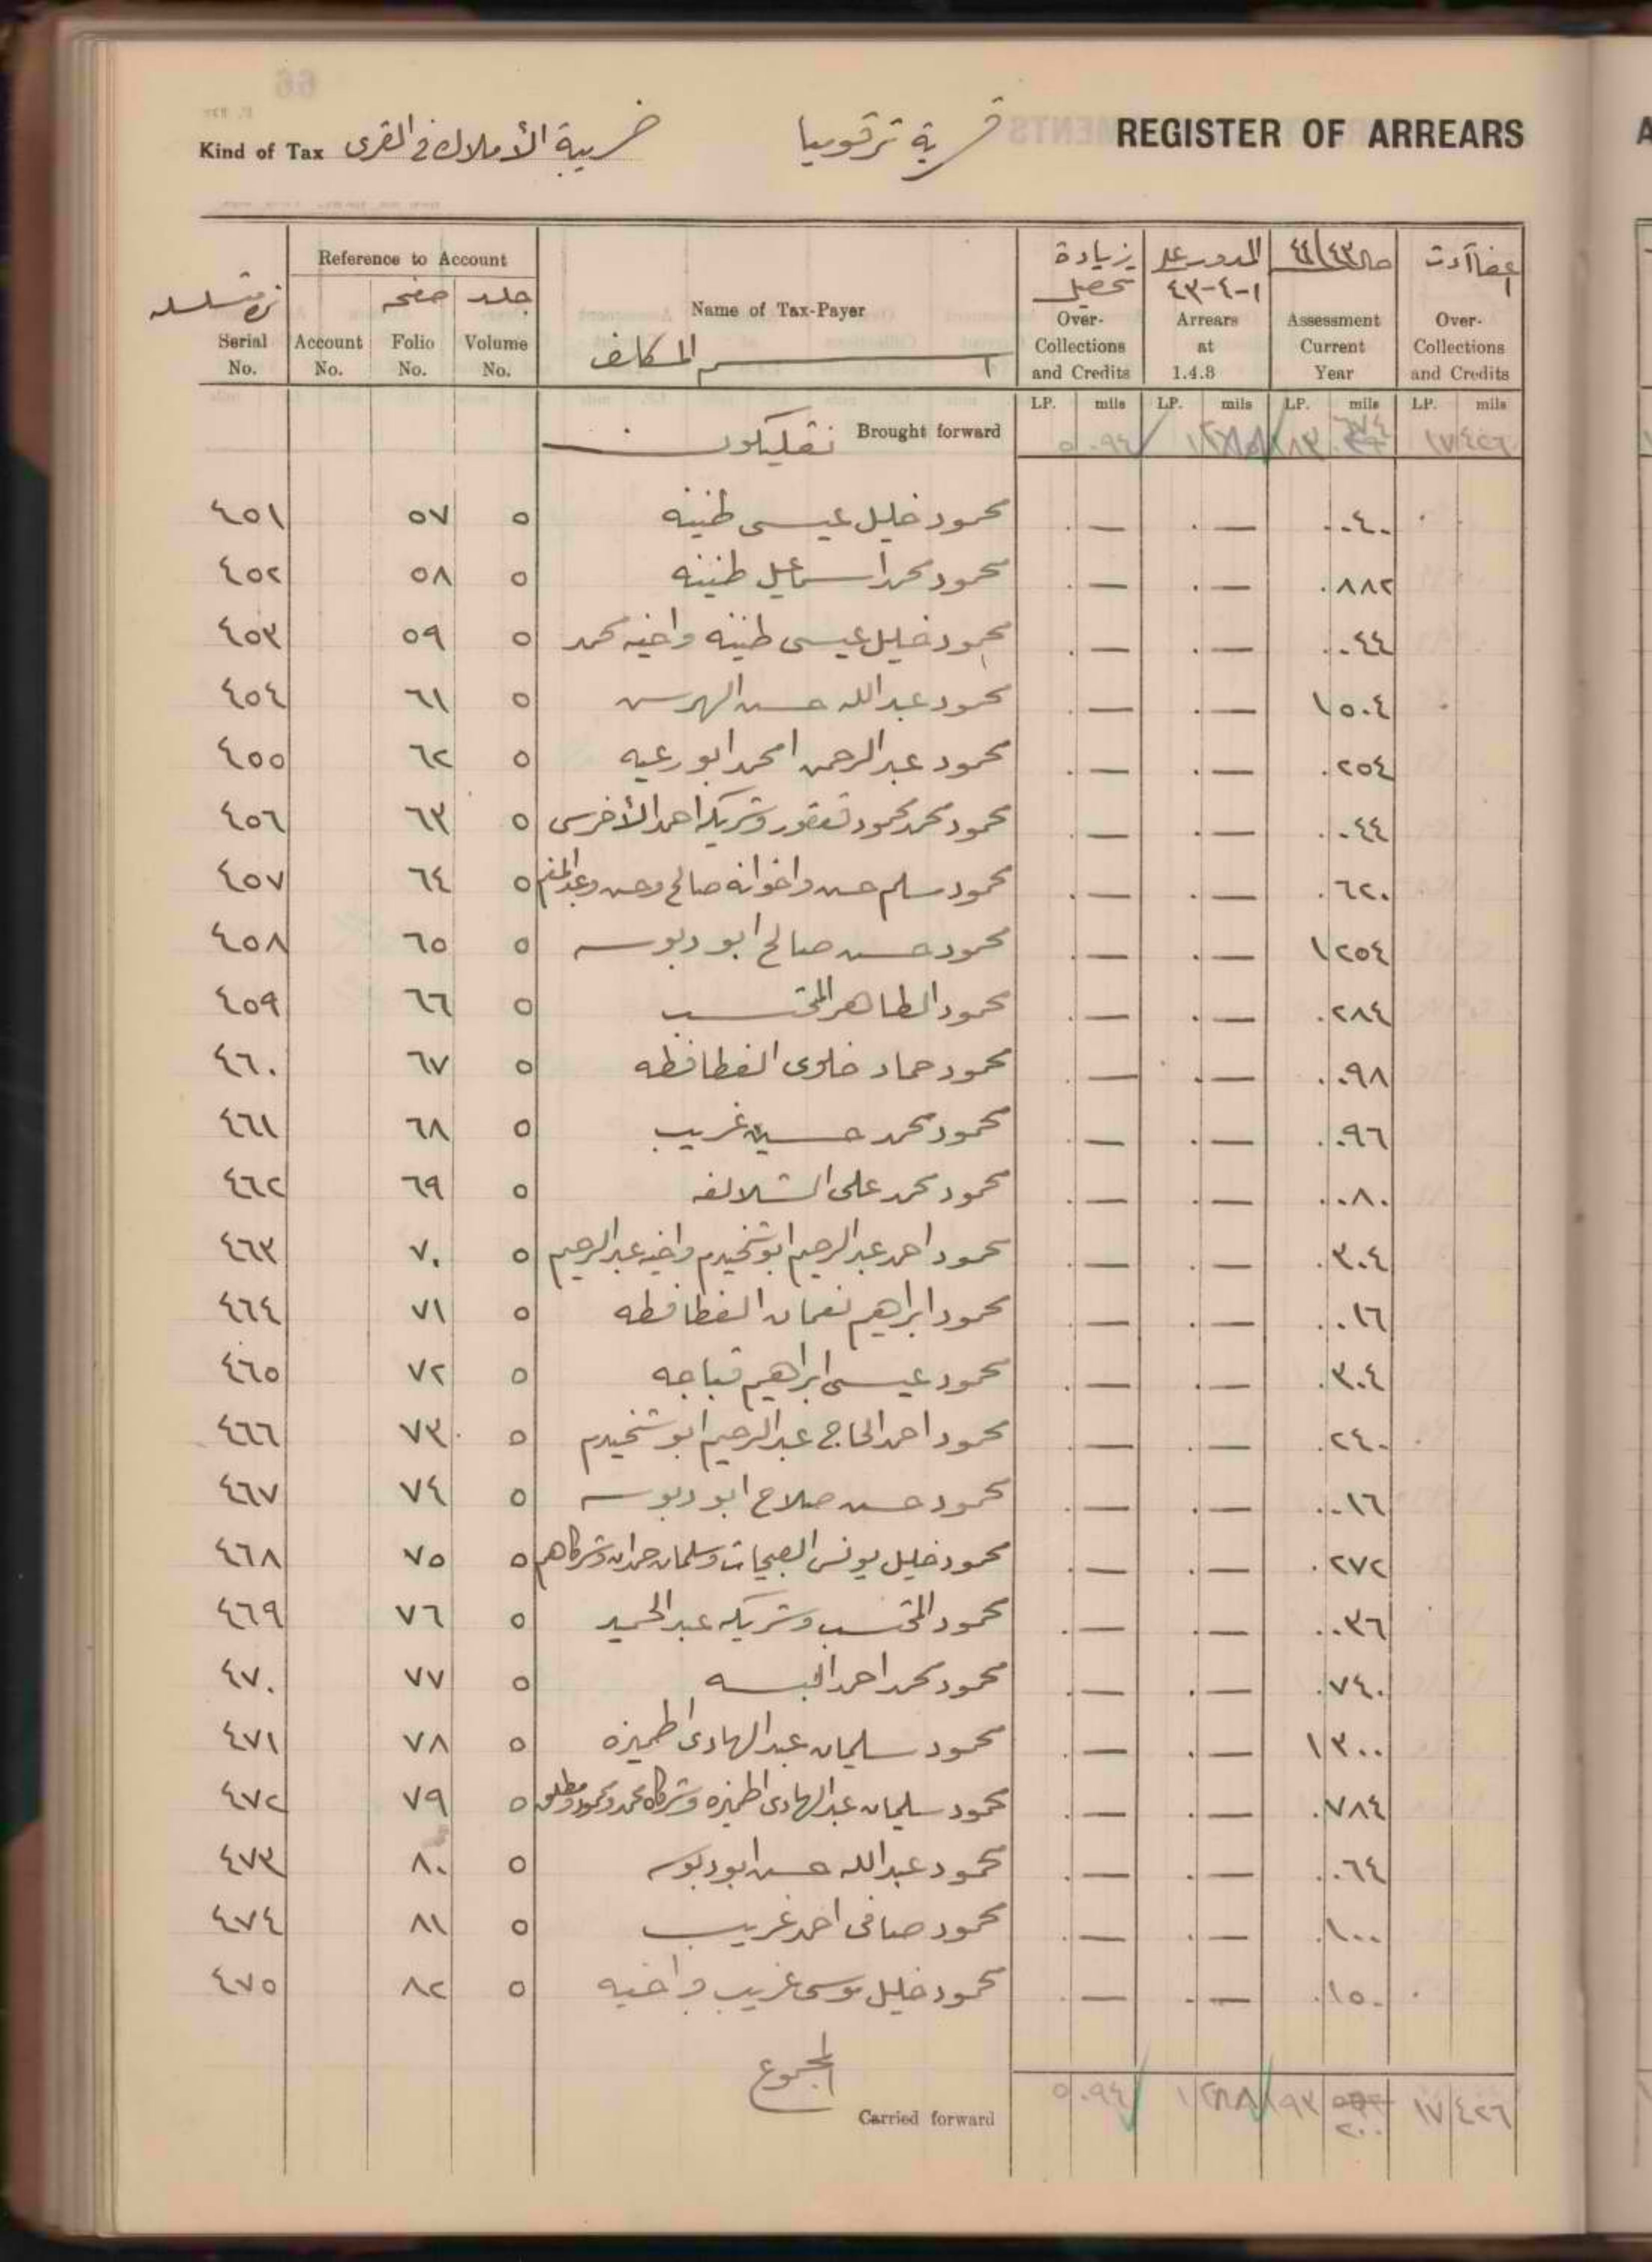 REGISTER OF ARREARS
قرية ترقوميا
Kind of Tax ضريبة الأملاك في القرى
Reference to Account
Serial No.
Account No.
صفحه Folio No.
جلد Volume No.
Name of Tax-Payer
اسم المكلف
زيادة تحصيل Over-Collections and Credits
المدور على ١-٤-٤٣ Arrears at 1.4.8
٤٤/٤٣ Assessment Current Year
Over-Collections and Credits
LP. mils LP. mils LP. mils LP. mils
Brought forward ٥٠٩٤ ١٧٤٢٦
٤٥١ ٥٧ ٥ محمود خليل عيسى طنينه — — ٠٤٠
٤٥٢ ٥٨ ٥ محمود محمد اسماعيل طنينه — — ٨٨٢
٤٥٣ ٥٩ ٥ محمود خليل عيسى طنينه واخيه محمد — — ٠٤٤
٤٥٤ ٦١ ٥ محمود عبدالله حسن الهرس — — ١٥٠٤
٤٥٥ ٦٢ ٥ محمود عبدالرحمن امحمد ابو رعيه — — ٢٥٤
٤٥٦ ٦٣ ٥ محمود محمد محمود قعقور وشريكه احمد الأخرس — — ٠٤٤
٤٥٧ ٦٤ ٥ محمود سلم حسن واخوانه صالح وحسن — — ٦٢٠
٤٥٨ ٦٥ ٥ محمود حسن صالح ابو دبوسه — — ١٢٥٤
٤٥٩ ٦٦ ٥ محمود الطاهر المحتسب — — ٢٨٤
٤٦٠ ٦٧ ٥ محمود حماد خلاوى الفطافطه — — ٠٩٨
٤٦١ ٦٨ ٥ محمود محمد حسين غريب — — ٠٩٦
٤٦٢ ٦٩ ٥ محمود محمد على الشلالفه — — ٠٨٠
٤٦٣ ٧٠ ٥ محمود احمد عبدالرحيم ابو شخيدم واخيه عبدالرحيم — — ٣٠٤
٤٦٤ ٧١ ٥ محمود ابراهيم نعمان الفطافطه — — ٠١٦
٤٦٥ ٧٢ ٥ محمود عيسى ابراهيم قباجه — — ٣٠٤
٤٦٦ ٧٣ ٥ محمود احمد الحاج عبدالرحيم ابو شخيدم — — ٢٤٠
٤٦٧ ٧٤ ٥ محمود حسن صلاح ابو دبوسه — — ٠١٦
٤٦٨ ٧٥ ٥ محمود خليل يونس وسلمان حمدان وشركاهم — — ٢٧٢
٤٦٩ ٧٦ ٥ محمود المحتسب وشريكه عبدالحميد — — ٠٣٦
٤٧٠ ٧٧ ٥ محمود محمد احمد — — ٧٤٠
٤٧١ ٧٨ ٥ محمود سليمان عبدالهادى اطميزه — — ١٣٠٠
٤٧٢ ٧٩ ٥ محمود سليمان عبدالهادى اطميزه وشركاه محمد ومحمود ومطلق — — ٧٨٤
٤٧٣ ٨٠ ٥ محمود عبدالله حسن ابو دبوسه — — ٠٦٤
٤٧٤ ٨١ ٥ محمود صافى احمد غريب — — ١٠٠
٤٧٥ ٨٢ ٥ محمود خليل موسى غريب واخيه — — ١٥٠
المجموع
Carried forward ٥٠٩٤ ١٧٤٢٦